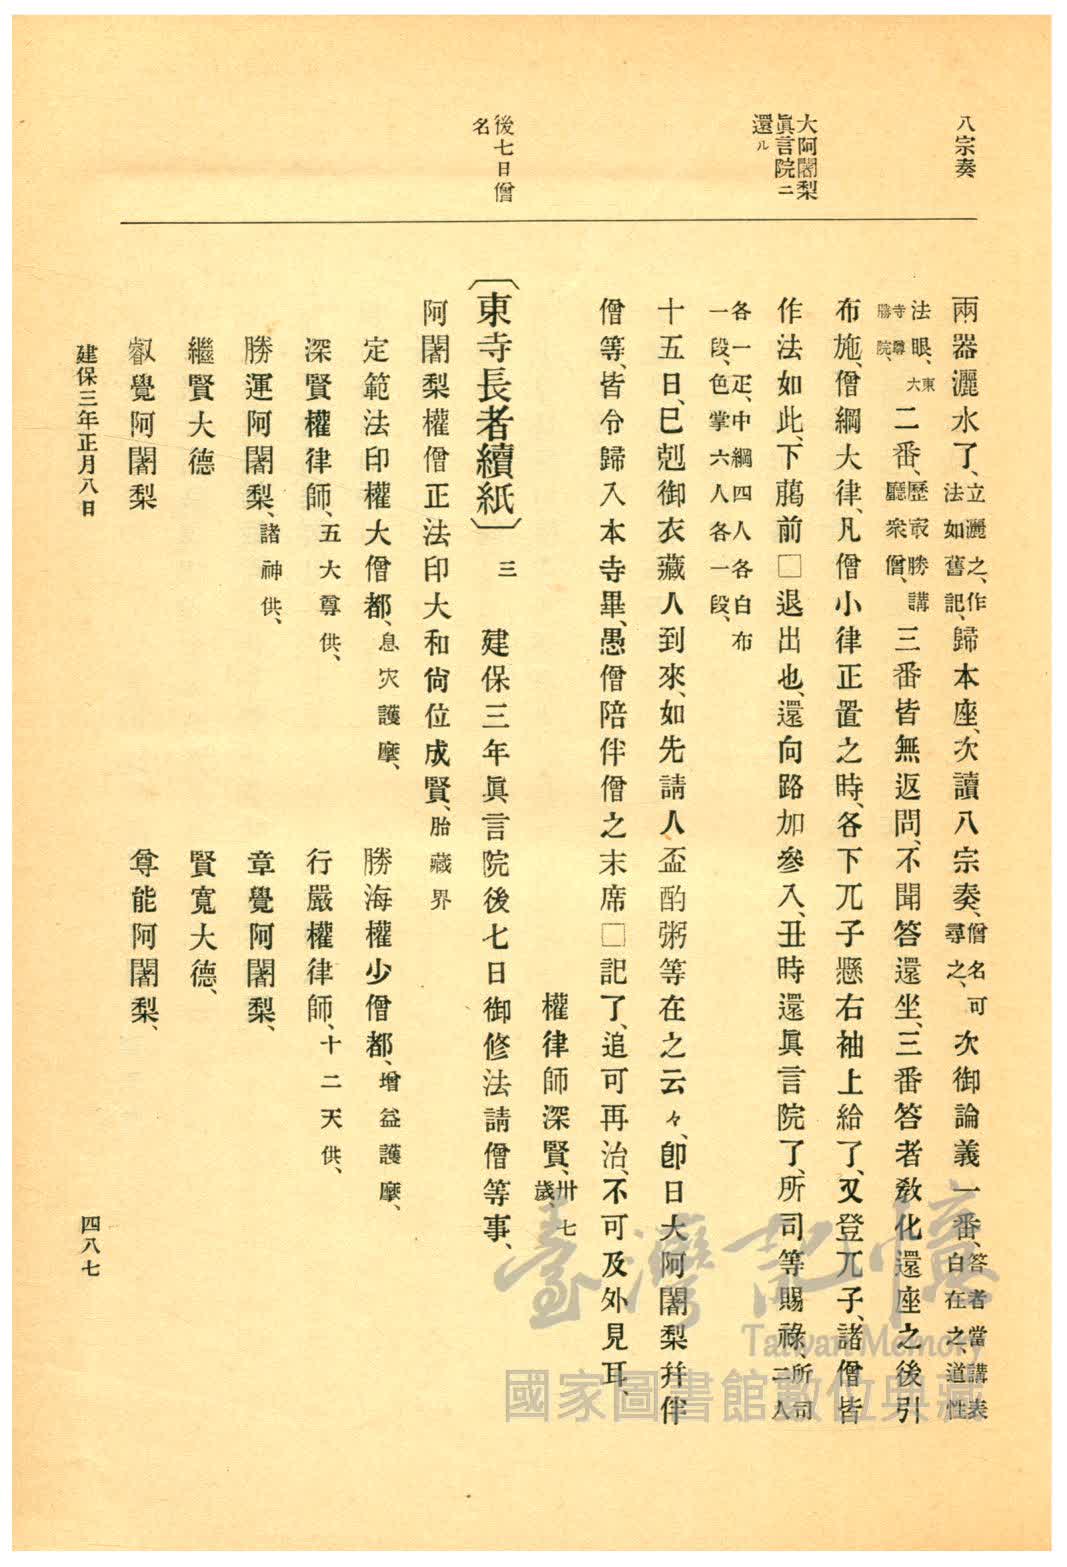 八宗奏
大阿闍梨
眞言院ニ
還ル
後七日僧
名
兩器灑水了、立灑之、作法如舊記、歸本座、次讀八宗奏、僧名可尋之、次御論義一番、答者當講表白在之、道性
法眼、東大寺尊勝院、二番、歷最勝講廳衆僧、三番皆無返問、不聞答還坐、三番答者教化還座之後引
布施、僧綱大律、凡僧小律正置之時、各下兀子懸右袖上給了、又登兀子、諸僧皆
作法如此、下﨟前□退出也、還向路加參入、丑時還眞言院了、所司等賜祿、所司二人
各一疋、中綱四人各白布一段、色掌六人各一段、
十五日、巳剋御衣藏人到來、如先請人、盃酌粥等在之云々、卽日大阿闍梨幷伴
僧等、皆令歸入本寺畢、愚僧陪伴僧之末席□記了、追可再治、不可及外見耳、
權律師深賢、卅七歲、
〔東寺長者續紙〕 三 建保三年眞言院後七日御修法請僧等事、
阿闍梨權僧正法印大和尙位成賢、胎藏界
定範法印權大僧都、息灾護摩、 勝海權少僧都、增益護摩、
深賢權律師、五大尊供、 行嚴權律師、十二天供、
勝運阿闍梨、諸神供、 章覺阿闍梨、
繼賢大德 賢寬大德、
叡覺阿闍梨 尊能阿闍梨、
建保三年正月八日
四八七
臺灣記憶
Taiwan Memory
國家圖書館數位典藏